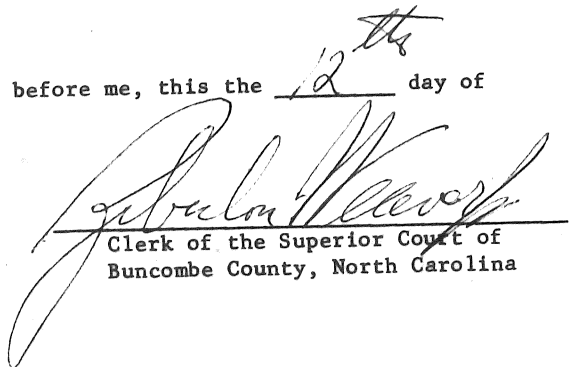 before me, this the 12th day of
Zebulon Weaver Jr
Clerk of the Superior Court of
Buncombe County, North Carolina